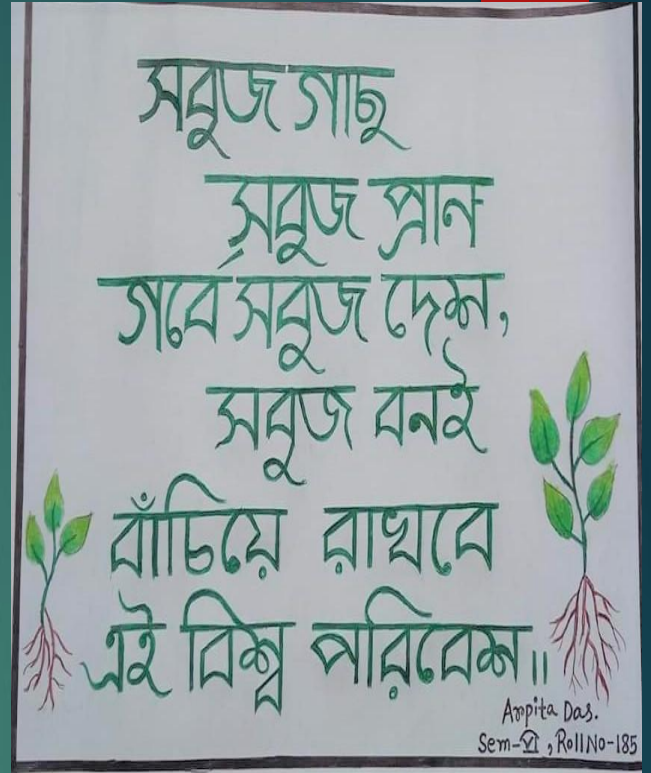 সবুজ গাছ
সবুজ প্রান
গর্বে সবুজ দেশ,
সবুজ বনই
বাঁচিয়ে রাখবে
এই বিশ্ব পরিবেশ॥
Arpita Das.
Sem-VI, Roll No-185